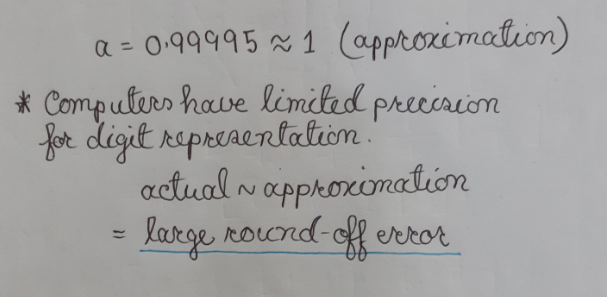 a = 0.99995 ≈ 1 (approximation)
* Computers have limited precision
for digit representation.
actual ~ approximation
= large round-off error